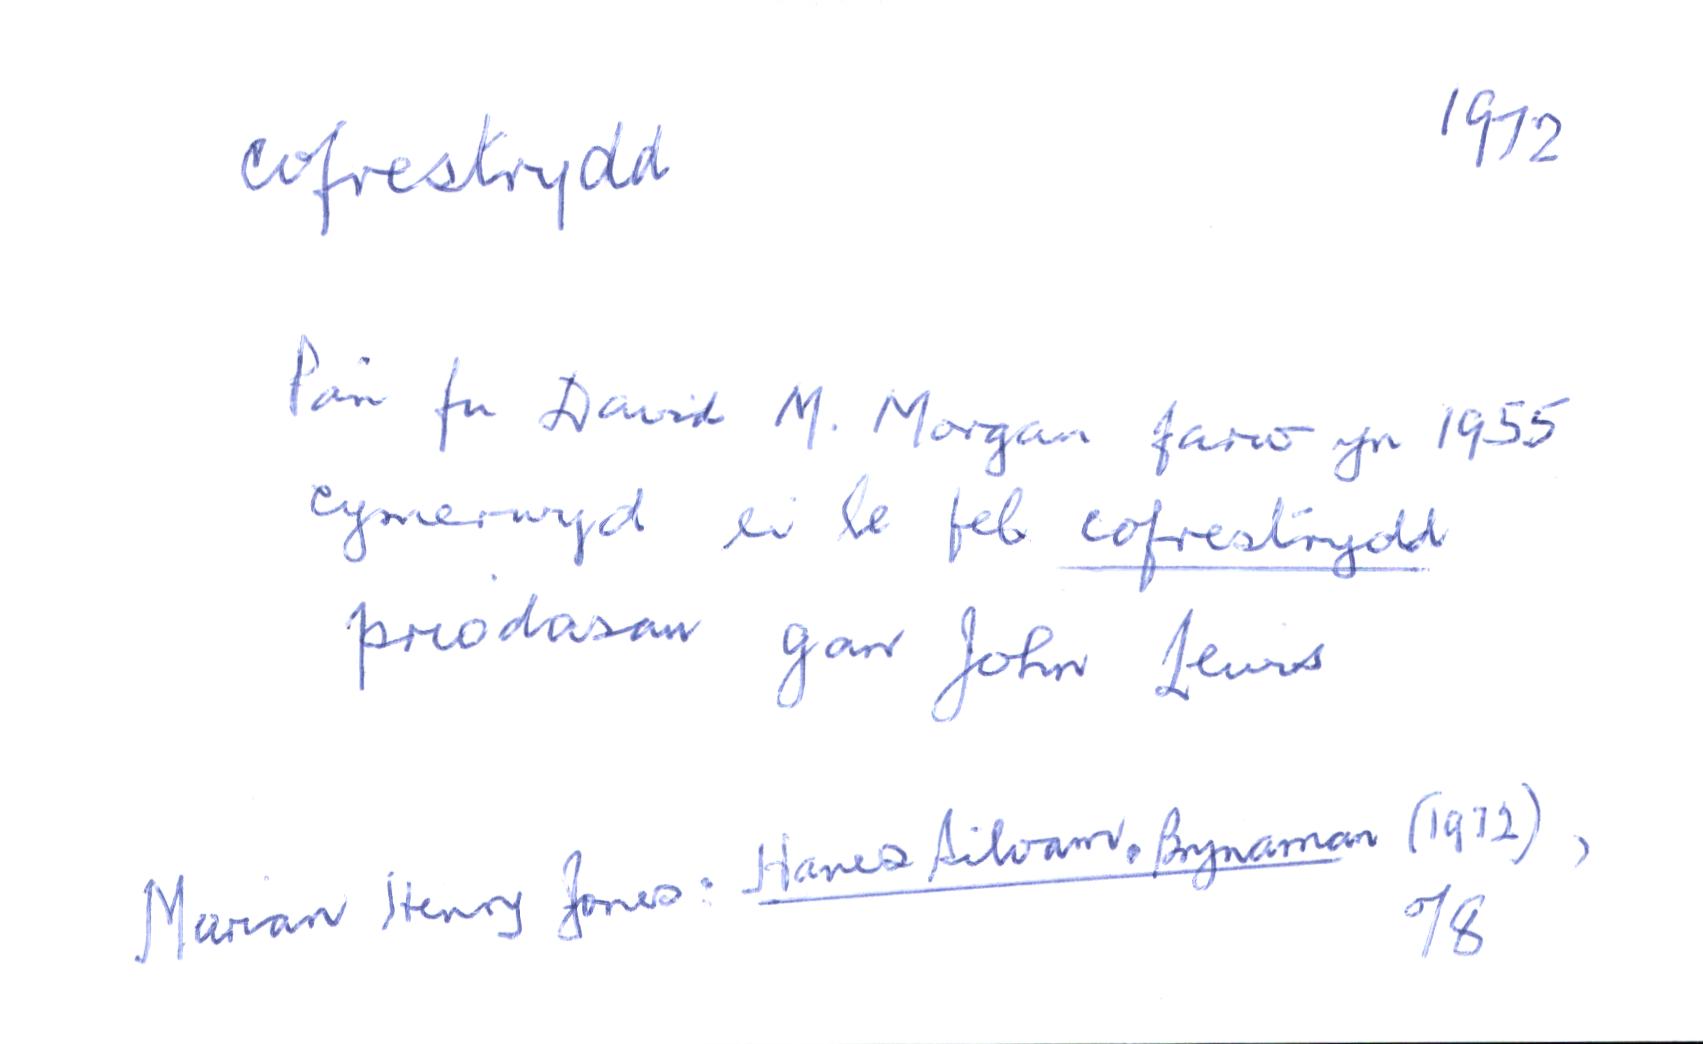 cofrestrydd 1972
Pan fu David M. Morgan farw yn 1955
cymerwyd ei le feb cofrestrydd
priodasau gan John Lewis
Marian Henry Jones: Hanes Siloam, Brynaman (1972),
98